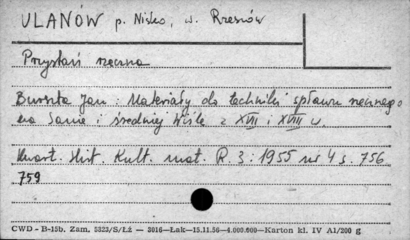 ULANÓW p. Nisko, w. Rzeszów
Przystań rzeczna
Burszta Jan: Materiały do techniki spławu rzecznego
na Sanie i średniej Wiśle z XVII i XVIII w.
Kwart. Hist. Kult. mat. R. 3: 1955 nr 4 s. 756
759
CWD - B-15b. Zam. 5323/S/Łż — 3016—Łak—15.11.56—4.000.000—Karton kl. IV A1/200 g